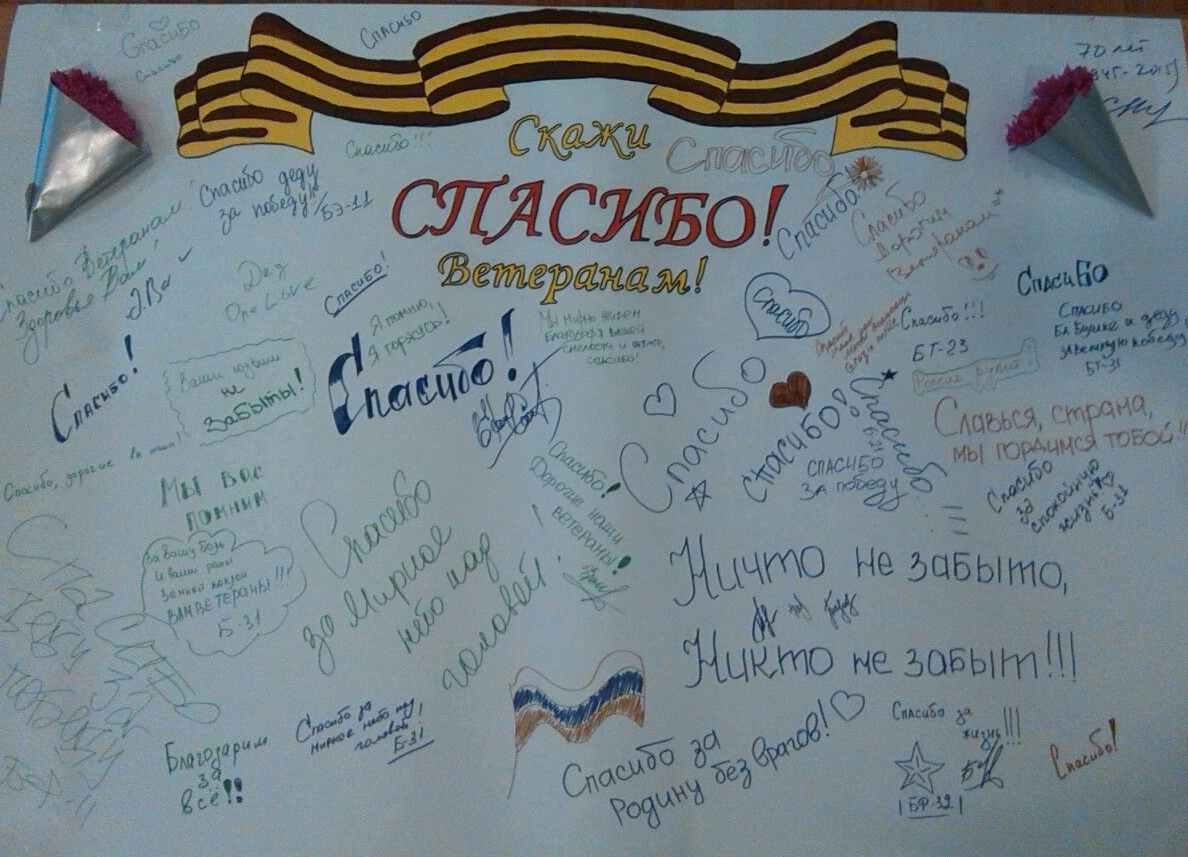 Спасибо
Спасибо
Спасибо
70 лет
Скажи
СПАСИБО!
Ветеранам!
Спасибо!!!
Спасибо
Спасибо деду
за победу!!!
БЭ-11
Спасибо Ветеранам!
Здоровье Вам!
Спасибо!
Спасибо
дорогим
ветеранам
Дед
One Love
Спасибо!
Я помню,
Я горжусь!
Спасибо!
Мы мирно живём
благодаря вашей
смелости и отваге,
спасибо!
Спасибо
Спасибо!!!
БТ-23
Спасибо
Спасибо
бабушке и деду
за великую победу
БТ-31
Россия рулит!
Спасибо!
Ваши подвиги
не
Забыты!
Славься, страна,
мы гордимся тобой!!
Спасибо
Спасибо!
Спасибо
Б-21
СПАСИБО
ЗА победу
Спасибо
за
спокойную
жизнь!
Б-31
Спасибо, дорогие
Мы Вас
помним
Спасибо!
Дорогие наши
ветераны!
За вашу боль
и ваши раны
Земной поклон
ВАМ ВЕТЕРАНЫ!!!
Б-31
Спасибо
за Мирное
небо над
головой!
Ничто не забыто,
Никто не забыт!!!
СПАСИБО
деду за
победу
Благодарим
за
всё!!
Спасибо за
мирное небо над
головой!
Б-31
Спасибо за
Родину без врагов!
Спасибо за
жизнь!!!
БФ-32
Спасибо!